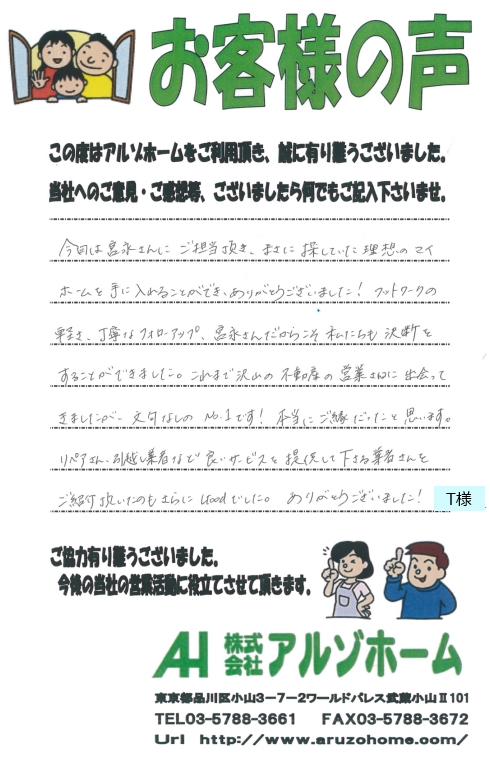 お客様の声
この度はアルゾホームをご利用頂き、誠に有り難うございました。
当社へのご意見・ご感想等、ございましたら何でもご記入下さいませ。
今回は宮永さんに ご担当頂き、まさに 探していた 理想の マイ
ホームを 手に入れることができ、ありがとうございました! フットワークの
軽さ、丁寧なフォローアップ、宮永さんだからこそ 私たちも 決断を
することができました。これまで沢山の 不動産の 営業さんに 出会って
きましたが、文句なしの No.1です! 本当に ご縁だったと 思います。
リペアさん、引越し業者など 良いサービスを 提供して 下さる業者さんを
ご紹介頂いたのも さらに Goodでした。 ありがとうございました!
T様
ご協力有り難うございました。
今後の当社の営業活動に役立てさせて頂きます。
AH 株式会社 アルゾホーム
東京都品川区小山3-7-2ワールドパレス武蔵小山Ⅱ101
TEL03-5788-3661 FAX03-5788-3672
Url http://www.aruzohome.com/